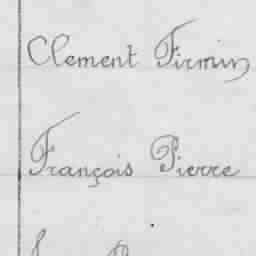 Clement Firmin
François Pierre